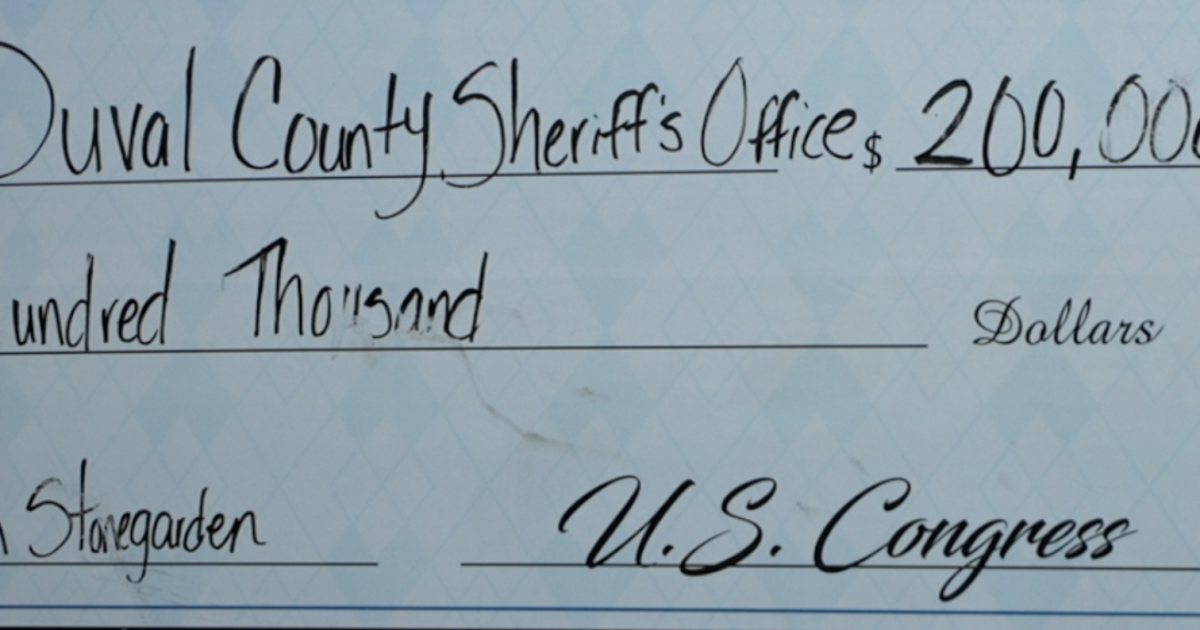 Duval County Sheriff's Office $ 200,00
undred Thousand Dollars
Stonegarden U.S. Congress